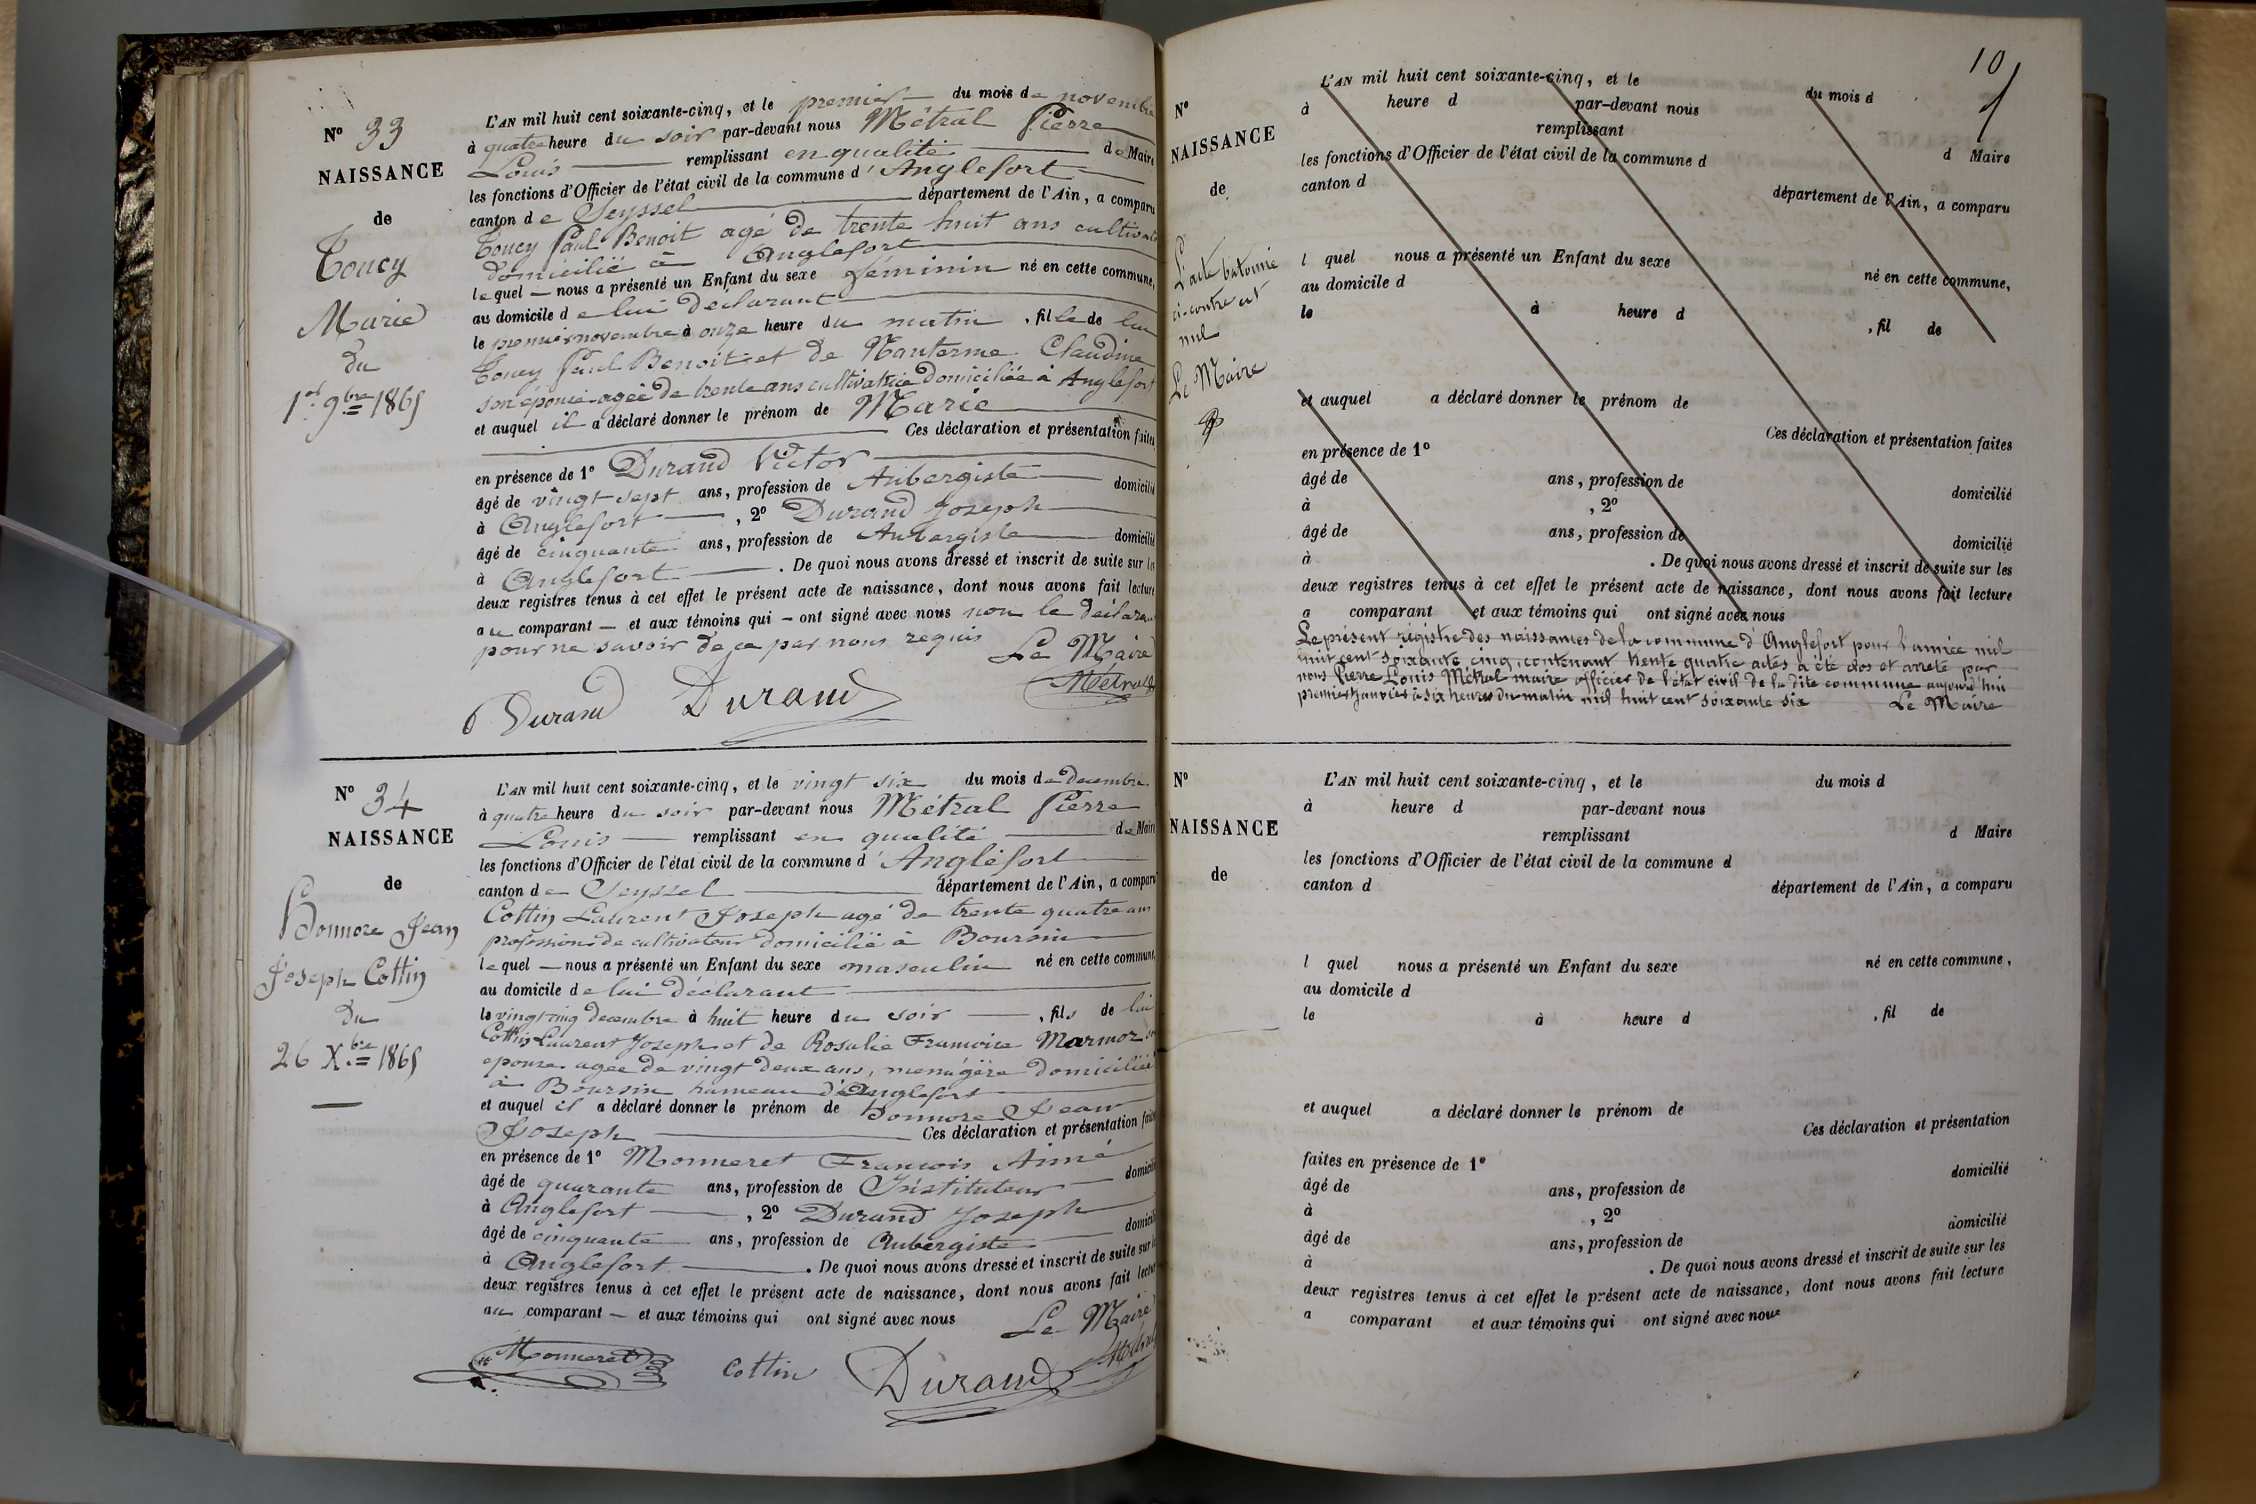 N° 33
NAISSANCE
de
Toucy
Marie
du
1er 9bre 1865
L'AN mil huit cent soixante-cinq, et le premier du mois de novembre
à quatre heure du soir par-devant nous Métral Pierre
Louis remplissant en qualité de Maire
les fonctions d'Officier de l'état civil de la commune d'Anglefort
canton de Seyssel département de l'Ain, a comparu
Toucy Paul Benoit agé de trente huit ans cultivat
domicilié à Anglefort
lequel — nous a présenté un Enfant du sexe féminin né en cette commune,
au domicile de lui déclarant
le premier novembre à onze heure du matin, fille de lui
Toucy Paul Benoit et de Nanterme Claudine
son épouse agée de trente ans cultivatrice domiciliée à Anglefort
et auquel il a déclaré donner le prénom de Marie
Ces déclaration et présentation faites
en présence de 1° Durand Victor
âgé de vingt sept ans, profession de Aubergiste domicilié
à Anglefort, 2° Durand Joseph
âgé de cinquante ans, profession de Aubergiste domicilié
à Anglefort. De quoi nous avons dressé et inscrit de suite sur les
deux registres tenus à cet effet le présent acte de naissance, dont nous avons fait lecture
au comparant — et aux témoins qui — ont signé avec nous non le déclarant
pour ne savoir de ce par nous requis Le Maire
Durand Durand Métral
N° 34
NAISSANCE
de
Honnore Jean
Joseph Cottin
du
26 Xbre 1865
L'AN mil huit cent soixante-cinq, et le vingt six du mois de decembre
à quatre heure du soir par-devant nous Métral Pierre
Louis remplissant en qualité de Maire
les fonctions d'Officier de l'état civil de la commune d'Anglefort
canton de Seyssel département de l'Ain, a comparu
Cottin Laurent Joseph agé de trente quatre ans
profession de cultivateur domicilié à Boursin
lequel — nous a présenté un Enfant du sexe masculin né en cette commune,
au domicile de lui déclarant
le vingt cinq decembre à huit heure du soir, fils de lui
Cottin Laurent Joseph et de Rosalie Francoise Marmoz
epouse agée de vingt deux ans, menágère domiciliée
à Boursin hameau d'Anglefort
et auquel il a déclaré donner le prénom de honnore Jean
Joseph Ces déclaration et présentation faites
en présence de 1° Monneret Francois Aimé
âgé de quarante ans, profession de Instituteur domicilié
à Anglefort, 2° Durand Joseph
âgé de cinquante ans, profession de Aubergiste domicilié
à Anglefort. De quoi nous avons dressé et inscrit de suite sur les
deux registres tenus à cet effet le présent acte de naissance, dont nous avons fait lecture
au comparant — et aux témoins qui ont signé avec nous Le Maire
Monneret Cottin Durand Métral
10
N°
NAISSANCE
de
L'acte batonné
ci-contre est
nul
Le Maire
L'AN mil huit cent soixante-cinq, et le du mois d
à heure d par-devant nous
remplissant d Maire
les fonctions d'Officier de l'état civil de la commune d
canton d département de l'Ain, a comparu
l quel nous a présenté un Enfant du sexe né en cette commune,
au domicile d
le à heure d , fil de
et auquel a déclaré donner le prénom de
Ces déclaration et présentation faites
en présence de 1°
âgé de ans, profession de domicilié
à , 2°
âgé de ans, profession de domicilié
à . De quoi nous avons dressé et inscrit de suite sur les
deux registres tenus à cet effet le présent acte de naissance, dont nous avons fait lecture
a comparant et aux témoins qui ont signé avec nous
Le présent registre des naissances de la commune d'Anglefort pour l'année mil
huit cent soixante cinq, contenant trente quatre actes a été clos et arreté par
nous Pierre Louis Métral maire officier de l'état civil de la dite commune aujourd'hui
premier janvier à six heures du matin mil huit cent soixante six Le Maire
N°
NAISSANCE
de
L'AN mil huit cent soixante-cinq, et le du mois d
à heure d par-devant nous
remplissant d Maire
les fonctions d'Officier de l'état civil de la commune d
canton d département de l'Ain, a comparu
l quel nous a présenté un Enfant du sexe né en cette commune,
au domicile d
le à heure d , fil de
et auquel a déclaré donner le prénom de
Ces déclaration et présentation
faites en présence de 1°
âgé de ans, profession de domicilié
à , 2°
âgé de ans, profession de domicilié
à . De quoi nous avons dressé et inscrit de suite sur les
deux registres tenus à cet effet le présent acte de naissance, dont nous avons fait lecture
a comparant et aux témoins qui ont signé avec nous